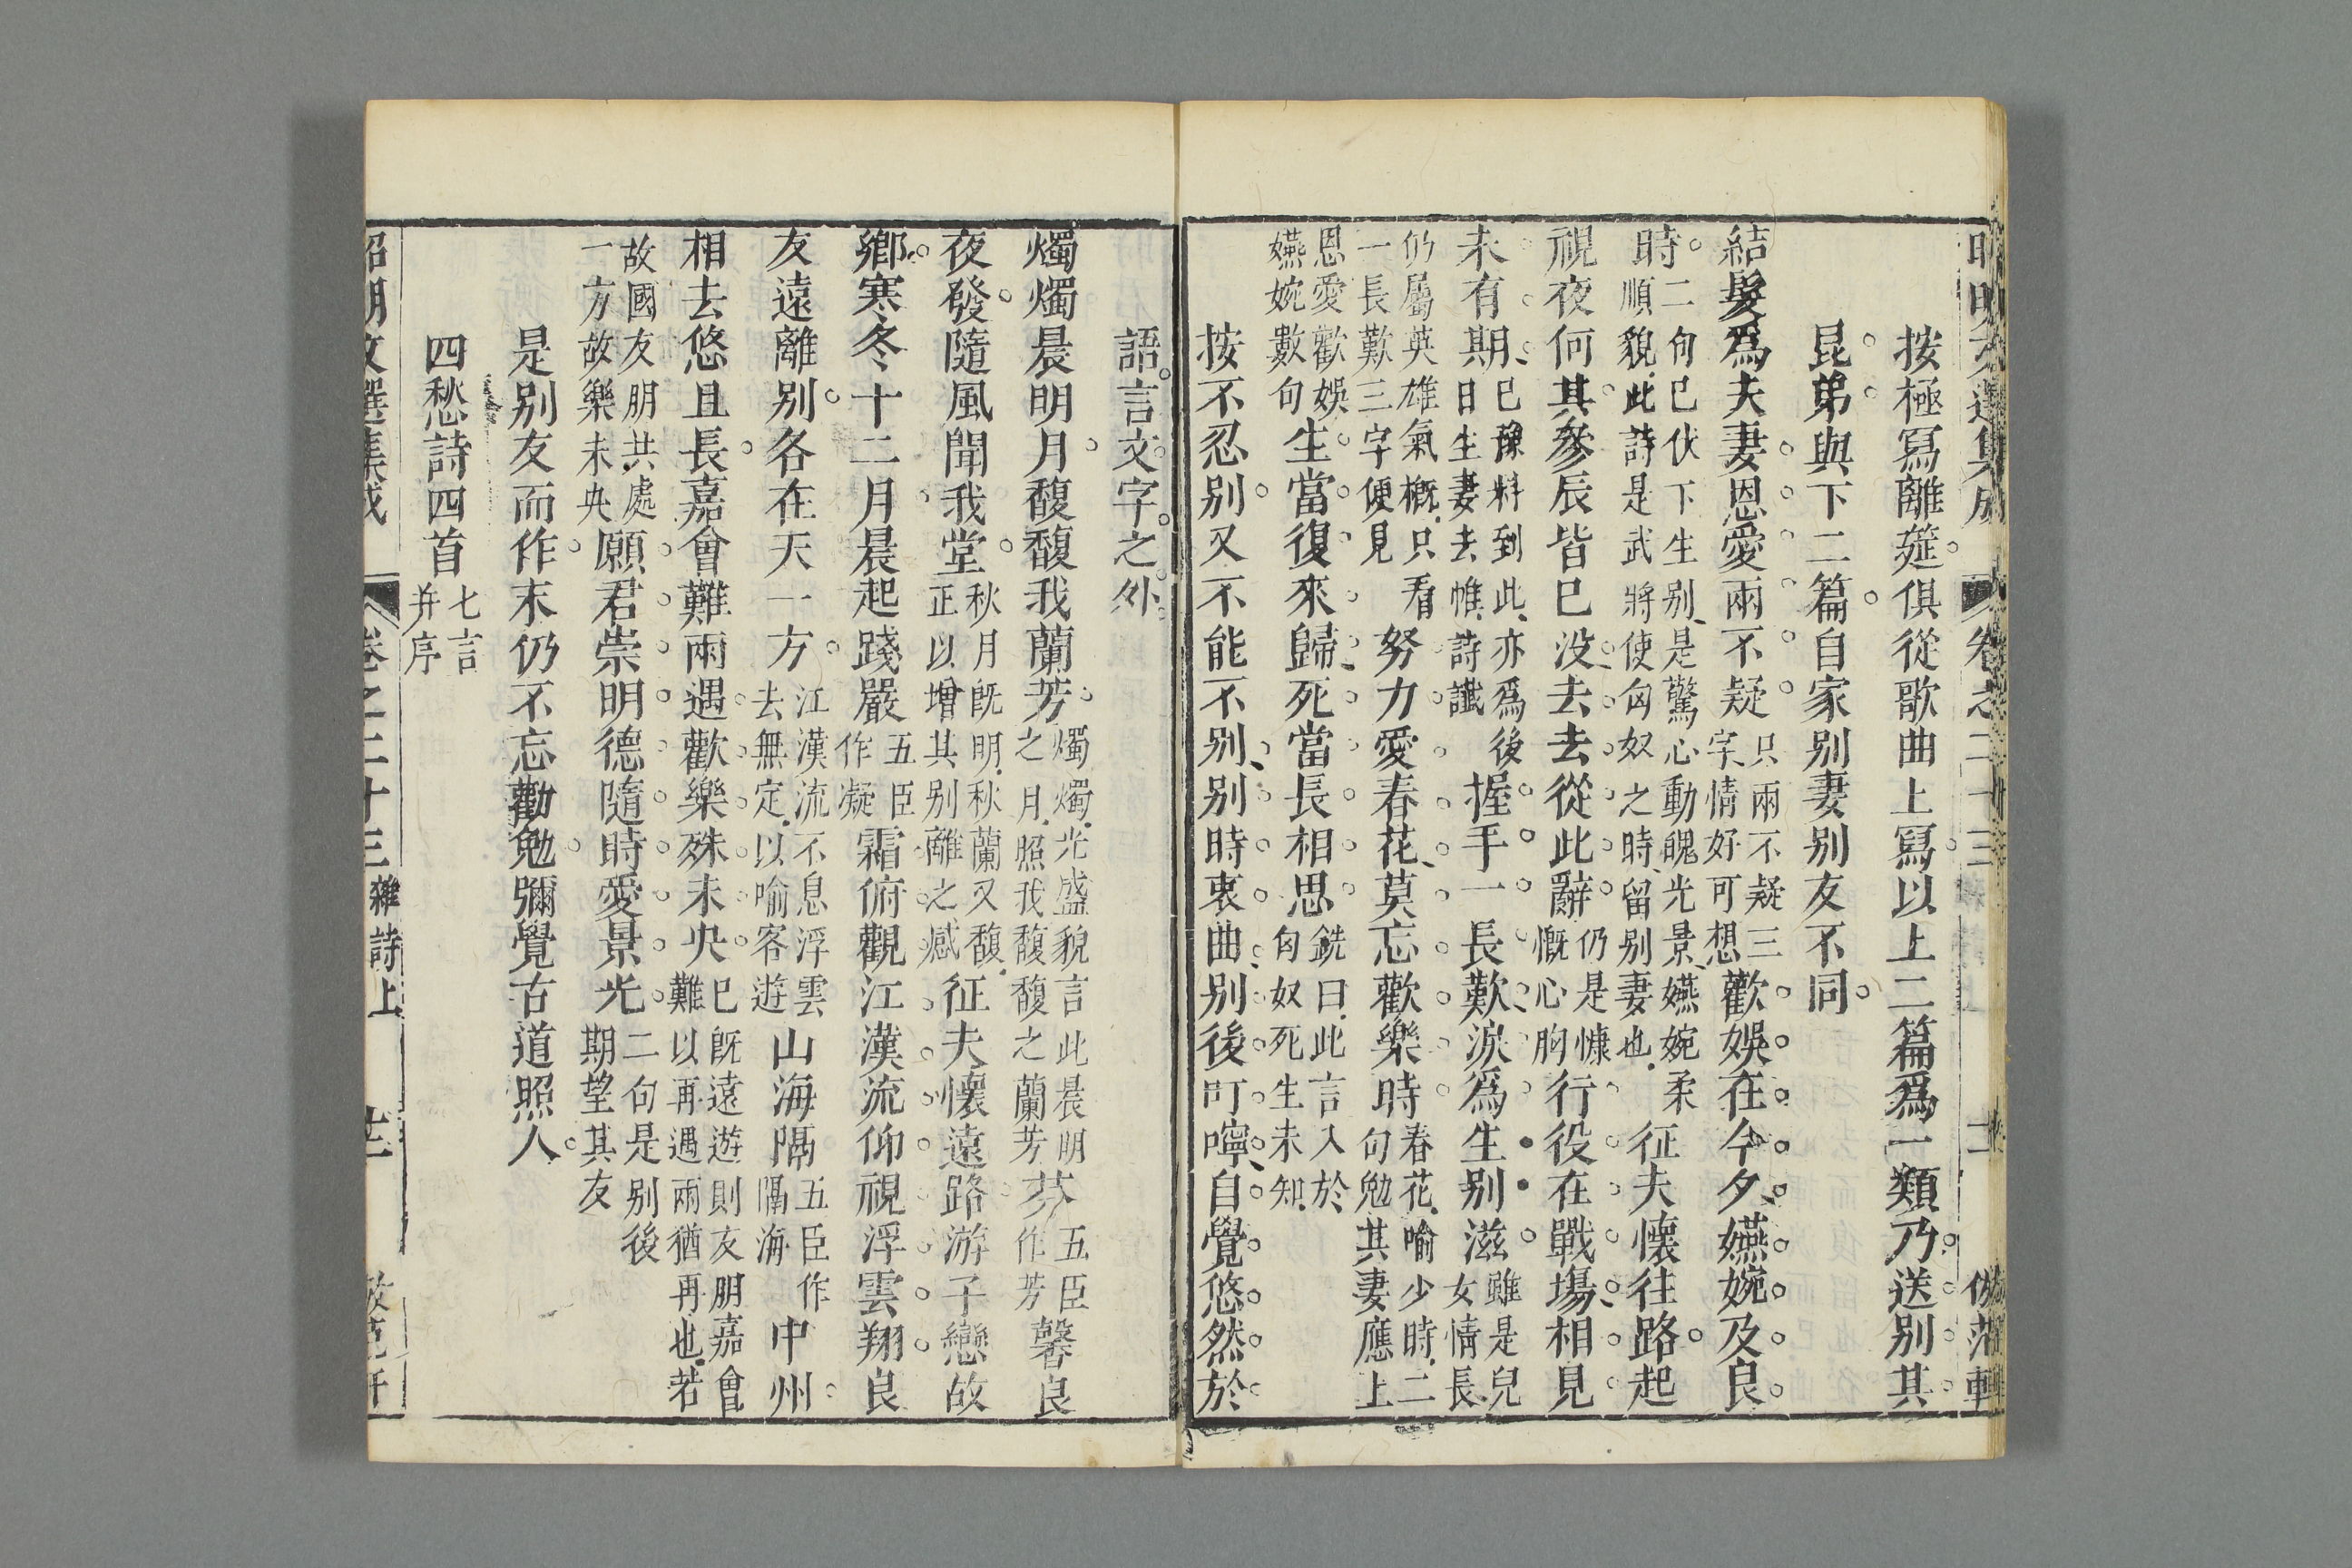 按極寫離筵俱從歌曲上寫以上二篇爲一類乃送別其
昆弟與下二篇自家別妻別友不同
結髮爲夫妻恩愛兩不疑只兩不疑三字情好可想歡娛在今夕嬿婉及良
時二句已伏下生別是驚心動魄光景嬿婉柔順貌此詩是武將使匈奴之時留別妻也征夫懷往路起
視夜何其參辰皆已没去去從此辭仍是慷慨心胸行役在戰場相見
未有期已豫料到此亦爲後日生妻去帷詩讖握手一長歎淚爲生別滋雖是兒女情長
仍屬英雄氣概只看一長歎三字便見努力愛春花莫忘歡樂時春花喻少時二句勉其妻應上
恩愛歡娛嬿婉數句生當復來歸死當長相思銑曰此言入於匈奴死生未知
按不忍別又不能不別別時衷曲別後叮嚀自覺悠然於
語言文字之外
燭燭晨明月馥馥我蘭芳燭燭光盛貌言此晨明之月照我馥馥之蘭芳芬五臣作芳馨良
夜發隨風聞我堂秋月既明秋蘭又馥正以增其別離之感征夫懷遠路游子戀故
鄉寒冬十二月晨起踐嚴五臣作凝霜俯觀江漢流仰視浮雲翔良
友遠離別各在天一方江漢流不息浮雲去無定以喻客遊山海隔五臣作隔海中州
相去悠且長嘉會難兩遇歡樂殊未央已既遠遊則友朋嘉會難以再遇兩猶再也若
故國友朋共處一方故樂未央願君崇明德隨時愛景光二句是別後期望其友
是別友而作末仍不忘勸勉彌覺古道照人
四愁詩四首七言并序
昭明文選集成 卷之二十三 雜詩上